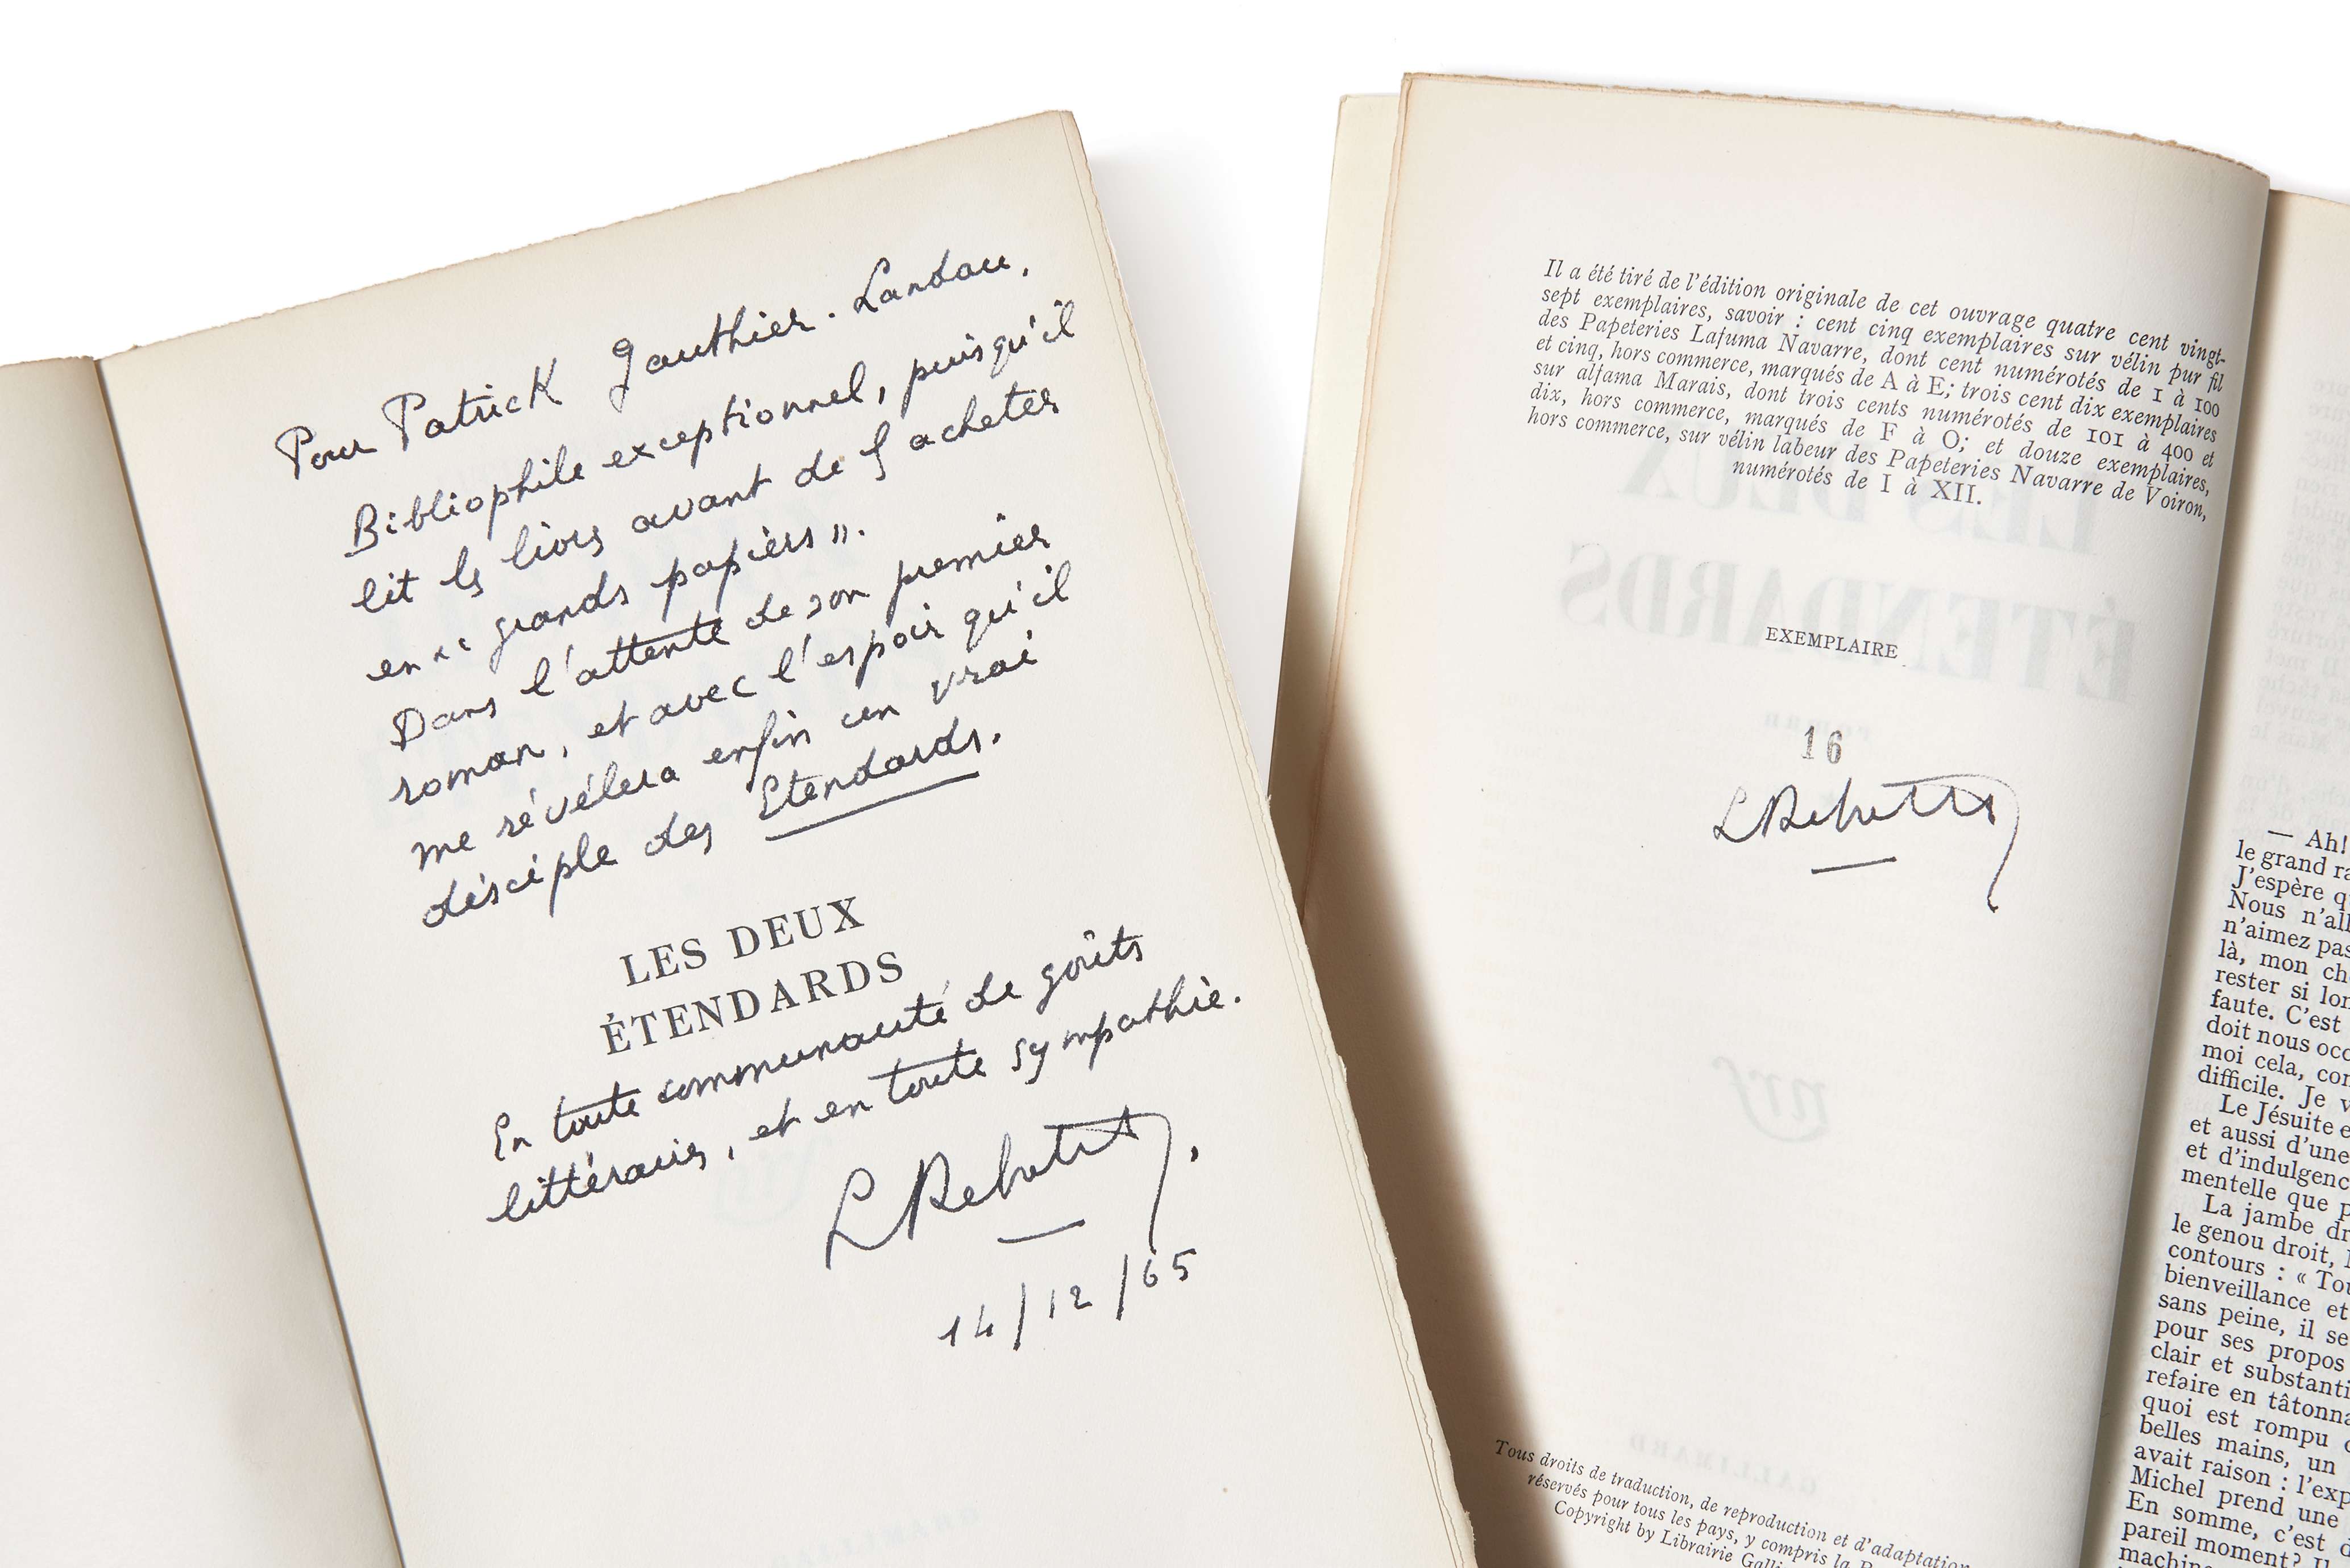 Pour Patrick Gauthier-Landau,
Bibliophile exceptionnel, puisqu'il
lit les livres avant de les acheter
en « grands papiers ».
Dans l'attente de son premier
roman, et avec l'espoir qu'il
me révélera enfin un vrai
disciple des Etendards.
LES DEUX
ÉTENDARDS
En toute communauté de goûts
littéraires, et en toute sympathie.
L Rebatet,
14/12/65
Il a été tiré de l'édition originale de cet ouvrage quatre cent vingt-
sept exemplaires, savoir : cent cinq exemplaires sur vélin pur fil
des Papeteries Lafuma Navarre, dont cent numérotés de 1 à 100
et cinq, hors commerce, marqués de A à E; trois cent dix exemplaires
sur alfama Marais, dont trois cents numérotés de 101 à 400 et
dix, hors commerce, marqués de F à O; et douze exemplaires,
hors commerce, sur vélin labeur des Papeteries Navarre de Voiron,
numérotés de I à XII.
EXEMPLAIRE
16
L Rebatet
Tous droits de traduction, de reproduction et d'adaptation
réservés pour tous les pays, y compris la
Copyright by Librairie
— Ah!
le grand
J'espère
Nous n'
n'aimez pas
là, mon
rester si
faute. C'est
doit nous
moi cela,
difficile. Je
Le Jésuite
et aussi d'une
et d'
mentelle que
La jambe
le genou droit,
contours : «
bienveillance et
sans peine, il
pour ses propos
clair et
refaire en
quoi est rompu
belles mains, un
avait raison :
Michel prend une
En somme, c'est
pareil moment?